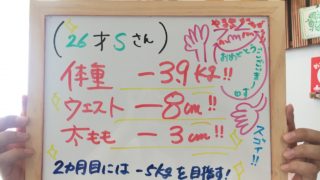 (26才Sさん)
体重 -3.9kg!!
ウエスト -8cm!!
太もも -3cm!!
2ヵ月目には-5kgを目指す!
おめでとう
ございまーす
スゴイ!!